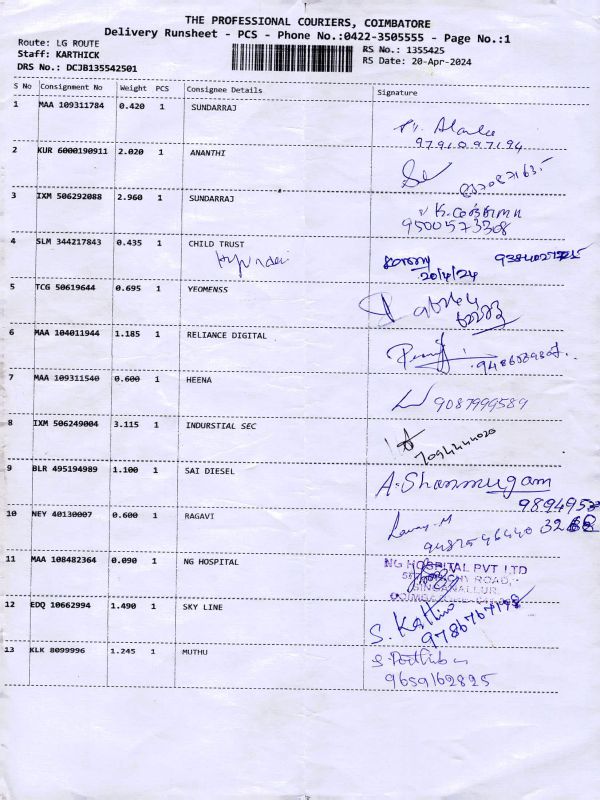 THE PROFESSIONAL COURIERS, COIMBATORE
Delivery Runsheet - PCS - Phone No.:0422-3505555 - Page No.:1
Route: LG ROUTE
RS No.: 1355425
Staff: KARTHICK
RS Date: 20-Apr-2024
DRS No.: DCJB135542501
S No Consignment No Weight PCS Consignee Details Signature
1 MAA 109311784 0.420 1 SUNDARRAJ
9791097194
2 KUR 6000190911 2.020 1 ANANTHI
3 IXM 506292088 2.960 1 SUNDARRAJ
9500573308
4 SLM 344217843 0.435 1 CHILD TRUST
20/4/24
5 TCG 50619644 0.695 1 YEOMENSS
6 MAA 104011944 1.185 1 RELIANCE DIGITAL
7 MAA 109311540 0.600 1 HEENA
9087999589
8 IXM 506249004 3.115 1 INDURSTIAL SEC
7094444020
9 BLR 495194989 1.100 1 SAI DIESEL
A. Shanmugam
10 NEY 40130007 0.600 1 RAGAVI
9487546440
11 MAA 108482364 0.090 1 NG HOSPITAL
NG HOSPITAL PVT LTD
SINGANALLUR,
12 EDQ 10662994 1.490 1 SKY LINE
13 KLK 8099996 1.245 1 MUTHU
9659162825